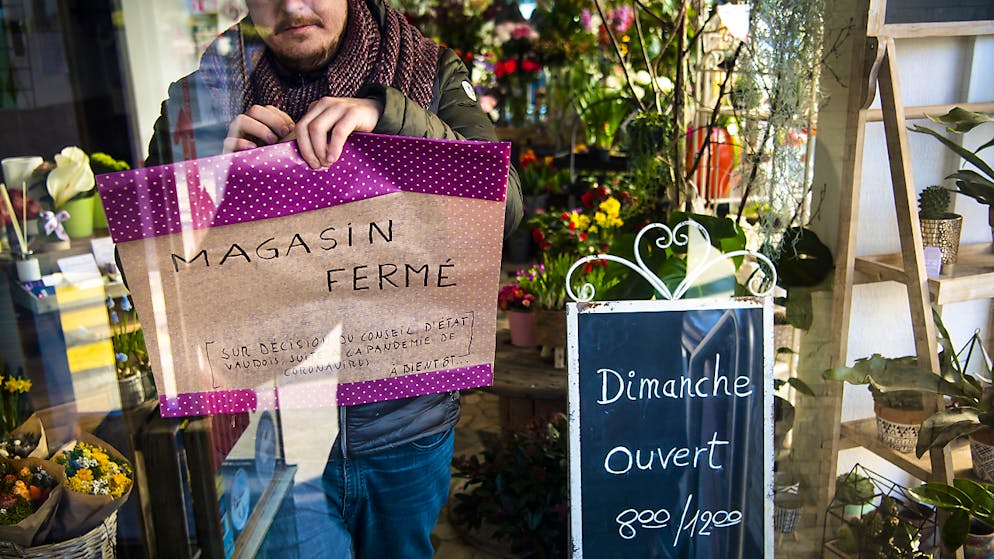 MAGASIN
FERMÉ
[SUR DÉCISION DU CONSEIL D'ÉTAT
VAUDOIS, SUITE À LA PANDÉMIE DE
CORONAVIRUS... À BIENTÔT...]
Dimanche
ouvert
8⁰⁰/12⁰⁰